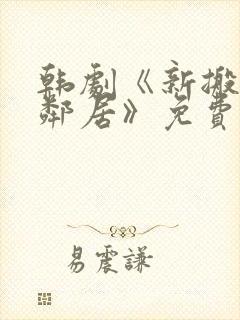 韩劇《新搬
鄰居》免費
易震謙